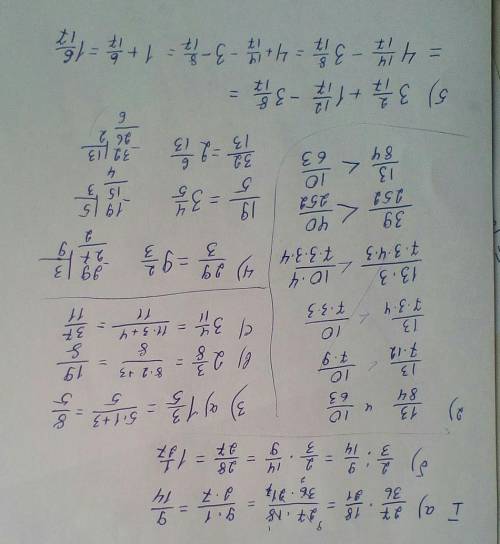 I а) 27/36 · 18/21 = 27·18/36·21 = 9·1/2·7 = 9/14
б) 2/3 : 9/14 = 2/3 · 14/9 = 28/27 = 1 1/27
2) 13/84 и 10/63
13/7·12 < 10/7·9
13/7·3·4 < 10/7·3·3
13·3/7·3·4·3 < 10·4/7·3·3·4
39/252 < 40/252
13/84 < 10/63
3) а) 1 3/5 = 5·1+3/5 = 8/5
в) 2 3/8 = 8·2+3/8 = 19/8
с) 3 4/11 = 11·3+4/11 = 37/11
4) 29/3 = 9 2/3
-29 | 3
27 | 9
2
19/5 = 3 4/5
-19 | 5
15 | 3
4
32/13 = 2 6/13
-32 | 13
26 | 2
6
5) 3 2/17 + 1 12/17 - 3 8/17 =
= 4 14/17 - 3 8/17 = 4 + 14/17 - 3 - 8/17 = 1 + 6/17 = 1 6/17